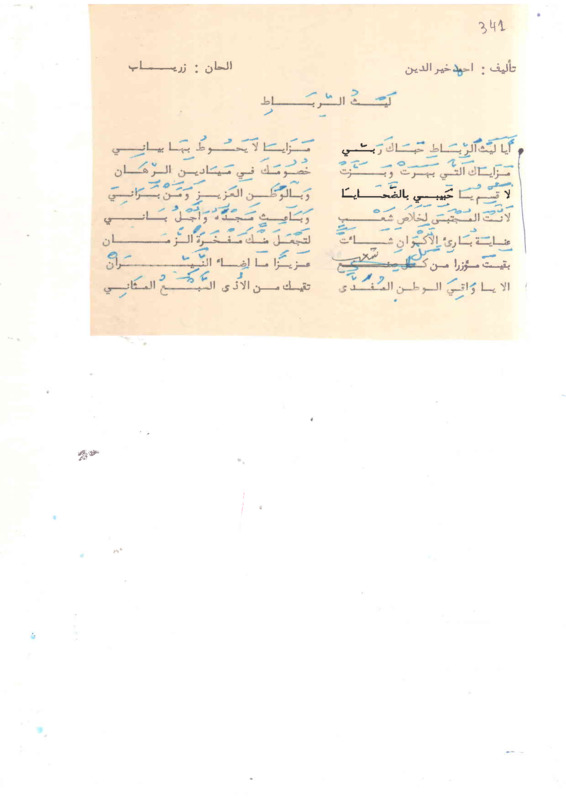 341
تأليف : احمد خير الدين الحان : زرياب
ليث الرباط
أيا ليث الرباط حباك ربي مزايا لا يحوط بها بياني
مزاياك التي بهرت وبزت خصومك في ميادين الرهان
لا قسم يا حبيبي بالضحايا وبالوطن العزيز ومن براني
لانت المجتبى لخلاص شعب وبايث مجده وأجل باني
عناية بارئ الأكوان شاءت لتجعل منك مفخرة الزمان
بقيت مؤزرا من كل شعب عزيزا ما اضاء النيران
الا يا واقي الوطن المفدى تقيك من الأذى السبع المثاني